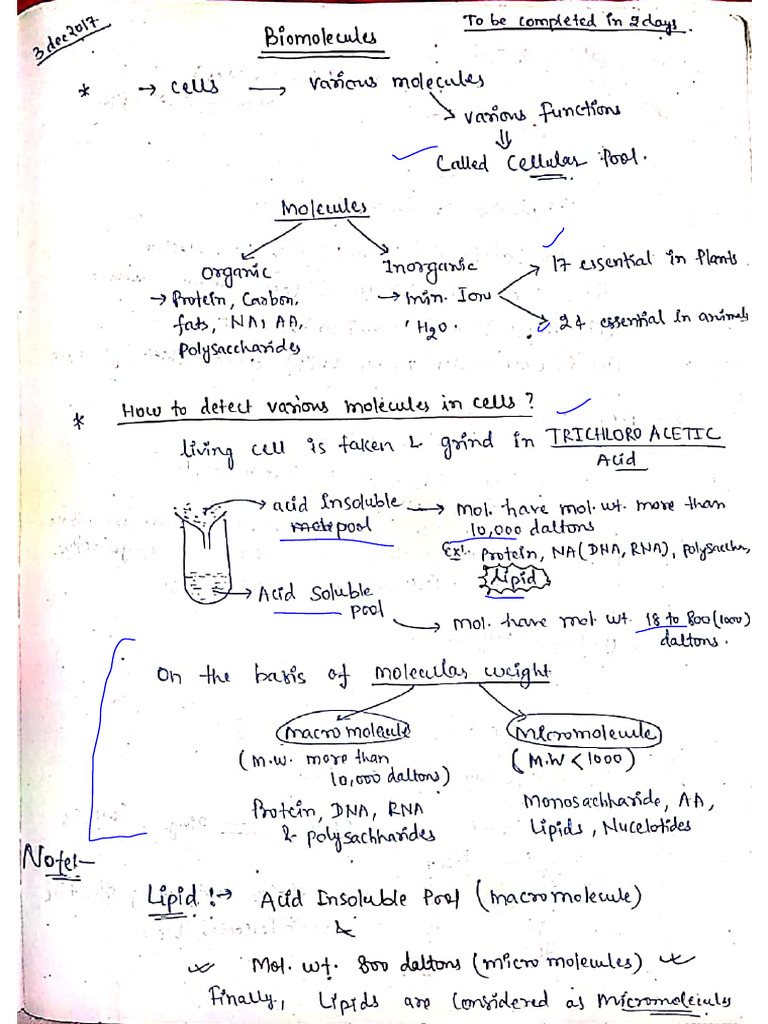 3 dec 2017
To be completed in 2 days.
Biomolecules
* → cells → various molecules
various functions
Called Cellular Pool.
Molecules
Organic
→ Protein, Carbon,
fats, NA, AA,
polysaccharides
Inorganic
→ min. Ion
' H2O.
17 essential in Plants
24 essential in animals
* How to detect various molecules in cells ?
living cell is taken & grind in TRICHLORO ACETIC
Acid
→ acid insoluble → mol. have mol. wt. more than
pool
10,000 daltons
Ex!. Protein, NA (DNA, RNA), polysacchar,
Lipid
→ Acid Soluble
pool
→ mol. have mol wt. 18 to 800 (1000)
daltons.
On the basis of molecular weight
macromolecule
(M.W. more than
10,000 daltons)
Protein, DNA, RNA
& polysachharides
Micromolecule
(M.W < 1000)
Monosachharide, AA,
Lipids, Nucelotides
Note:-
Lipid :→ Acid Insoluble Pool (macromolecule)
&
Mol. wt. 800 daltons (micro molecules)
Finally, Lipids are considered as Micromolecules